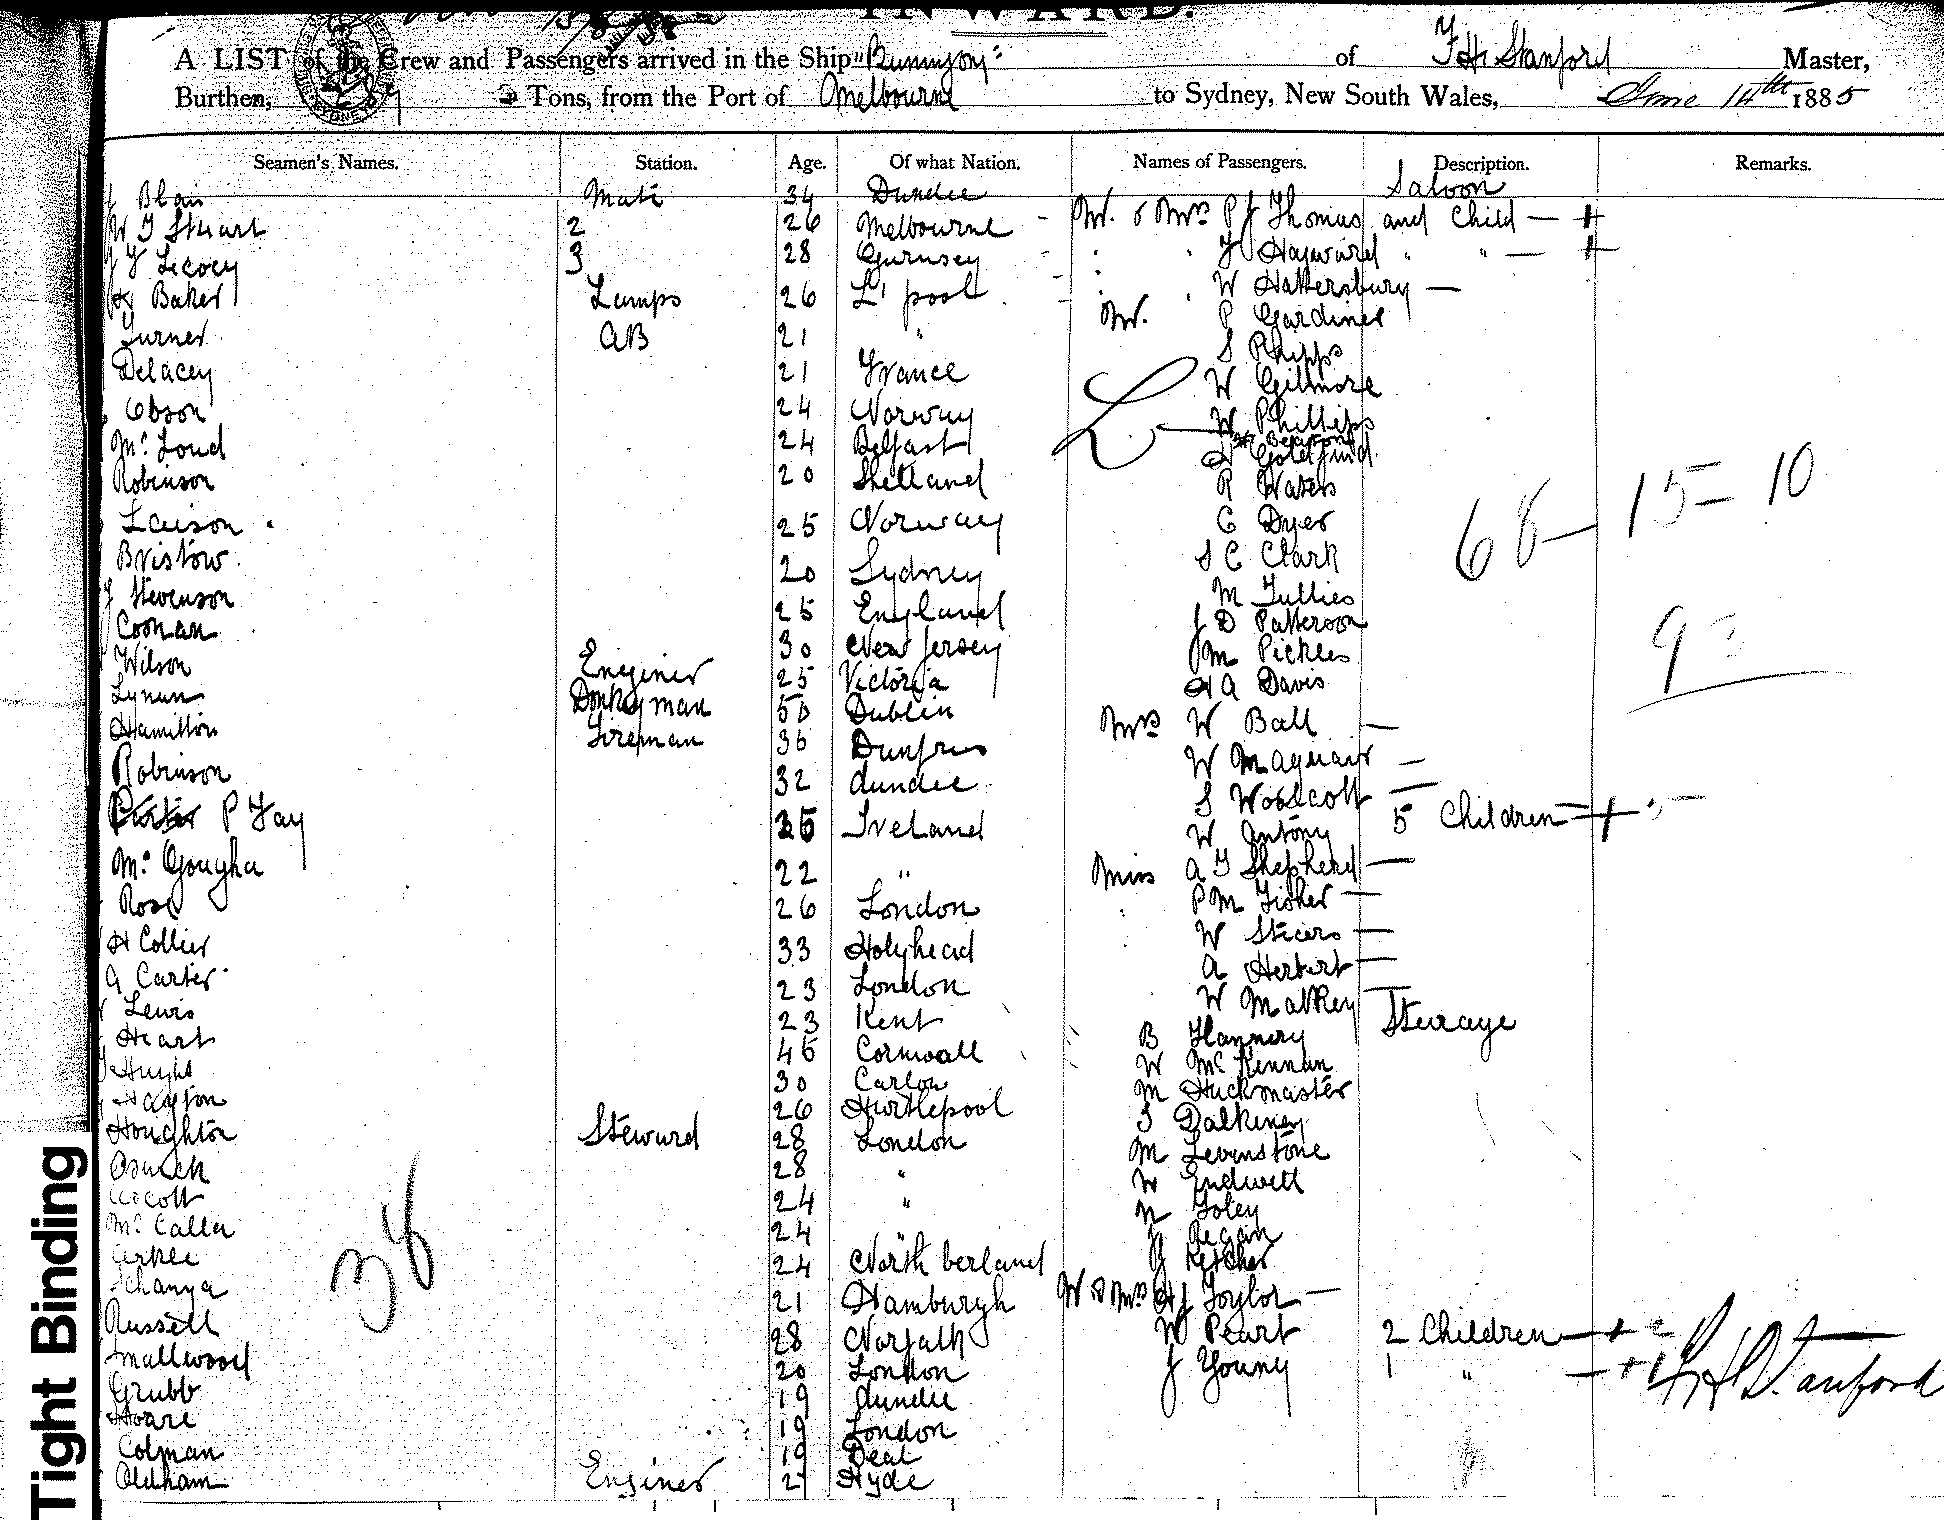 INWARD.
A LIST of the Crew and Passengers arrived in the Ship "Buninyong" of F H Stanford Master,
Burthen, Tons, from the Port of Melbourne to Sydney, New South Wales, June 14th 1885
Seamen's Names. Station. Age. Of what Nation. Names of Passengers. Description. Remarks.
Saloon
J Blair Mate 34 Dundee
W J Stuart 2 26 Melbourne Mr. & Mrs P J Thomas and Child
3 28 Gurnsey Hayward " "
Baker Lamps 26 L'pool W Hattersbury
Turner AB 21 " Mr. P Gardiner
S Phipps
Delacey 21 France W Gillmore
24 Norway W Phillips
Mc Loud 24 Belfast
Robinson 20 Shetland R Waters
25 Norway C Dyer
68 - 15 - 10
Bristow 20 Sydney S C Clark
J Stevenson 25 England M Tullies
Coonan 30 New Jersey J D Patterson
9
Wilson Enginer 25 Victoria J M Pickles
Lynan Donkeyman 50 Dublin H A Davis
Hamilton Fireman 36 Dunfries Mrs W Ball
Robinson 32 dundee W
S Woolcott
P Fay 26 Ireland W Antony 5 Children
Mc Gougha 22 " Miss A J Shepherd
Rose 26 London P M Fisher
H Collier 33 Holyhead W Steers
A Carter 23 London A Herbert
Lewis 23 Kent W
Sturage
Heart 45 Cornwall B Flannery
Hughs 30 Carlow W McKennan
Hayton 26 Hartlepool M Huckmaster
Houghton Steward 28 London S Dalkiney
28 " M Levinstone
24 " W Endwell
Mc Calla 24 " Foley
24 North berland Regan
Ketcher
38
21 Hamburgh Mr & Mrs H J Taylor
Russell 28 Norfalk W Peart 2 Children
Smallwood 20 London J Young 1 "
F H Stanford
Grubb 19 dundee
Hoare 19 London
Colman 19 Deal
Oldham Enginer 21 Hyde
Tight Binding